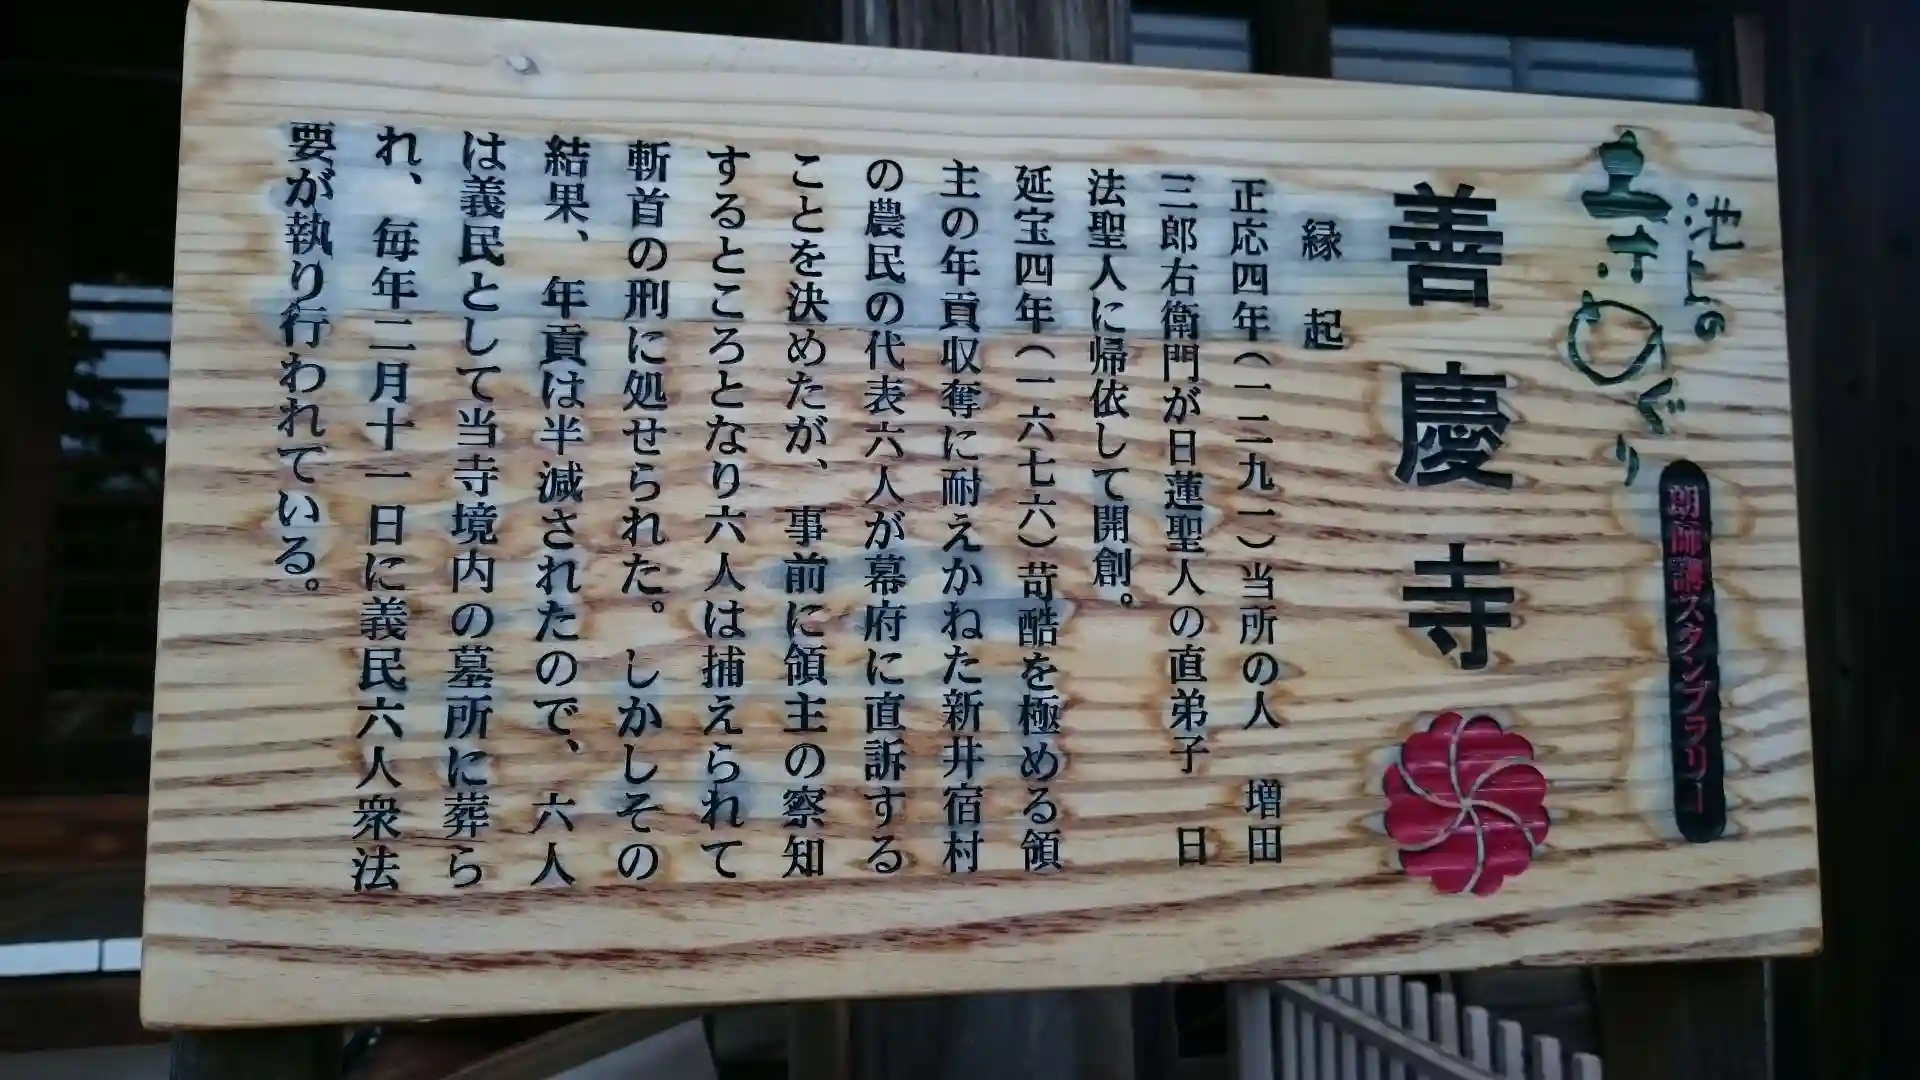 池上の
お寺めぐり
朗師講スタンプラリー
善慶寺
縁起
正応四年（一二九一）当所の人　増田
三郎右衛門が日蓮聖人の直弟子　日
法聖人に帰依して開創。
延宝四年（一六七六）苛酷を極める領
主の年貢収奪に耐えかねた新井宿村
の農民の代表六人が幕府に直訴する
ことを決めたが、事前に領主の察知
するところとなり六人は捕えられて
斬首の刑に処せられた。しかしその
結果、年貢は半減されたので、六人
は義民として当寺境内の墓所に葬ら
れ、毎年二月十一日に義民六人衆法
要が執り行われている。